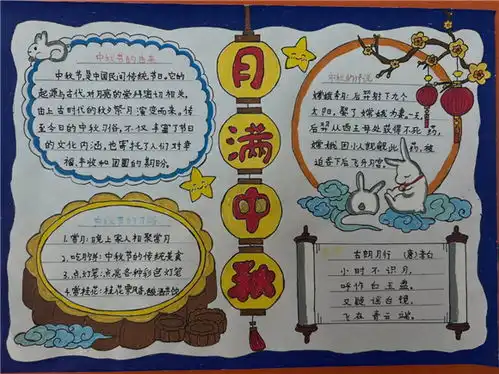 中秋节的由来
中秋节是中国民间传统节日。它的
起源与古代对月亮的崇拜密切相关,
由上古时代的秋夕祭月演变而来。传
至今日的中秋习俗,不仅丰富了节日
的文化内涵,也寄托了人们对幸
福、丰收和团圆的期盼。
中秋节的习俗
1.赏月:晚上家人相聚赏月
2.吃月饼:中秋节的传统美食
3.点灯笼:点亮各种彩色灯笼
4.赏桂花:桂花飘香,
月
满
中
秋
中秋的传说
嫦娥奔月:后羿射下九个
太阳,娶了嫦娥为妻。一天,
后羿从西王母处获得不死药,
嫦娥因小人觊觎此药,被
迫吞下后飞升月宫。
古朗月行 (唐)李白
小时不识月,
呼作白玉盘。
又疑瑶台镜,
飞在青云端。